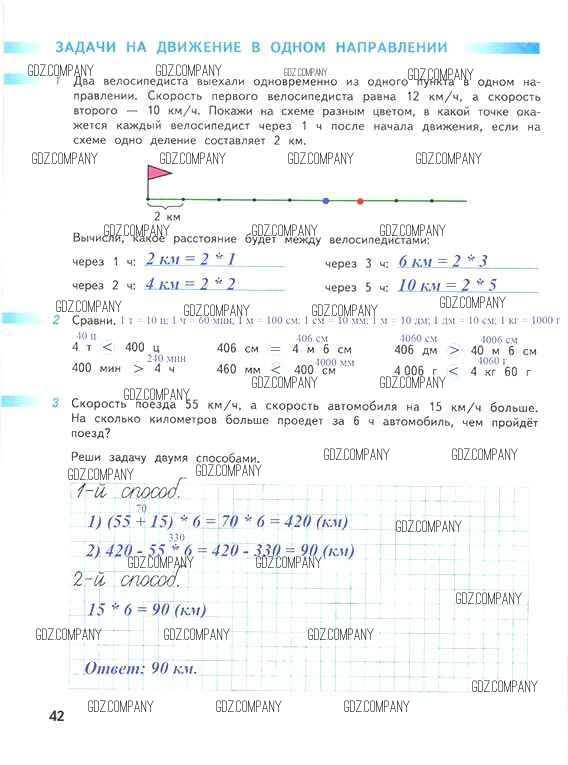 ЗАДАЧИ НА ДВИЖЕНИЕ В ОДНОМ НАПРАВЛЕНИИ
GDZ.COMPANY GDZ.COMPANY GDZ.COMPANY GDZ.COMPANY
1 Два велосипедиста выехали одновременно из одного пункта в одном на-
правлении. Скорость первого велосипедиста равна 12 км/ч, а скорость
второго — 10 км/ч. Покажи на схеме разным цветом, в какой точке ока-
жется каждый велосипедист через 1 ч после начала движения, если на
схеме одно деление составляет 2 км.
GDZ.COMPANY GDZ.COMPANY GDZ.COMPANY GDZ.COMPANY
2 км
GDZ.COMPANY GDZ.COMPANY GDZ.COMPANY
Вычисли, какое расстояние будет между велосипедистами:
через 1 ч: 2 км = 2 * 1 через 3 ч: 6 км = 2 * 3
через 2 ч: 4 км = 2 * 2 через 5 ч: 10 км = 2 * 5
GDZ.COMPANY GDZ.COMPANY GDZ.COMPANY GDZ.COMPANY
2 Сравни. 1 т = 10 ц; 1 ч = 60 мин, 1 м = 100 см; 1 см = 10 мм; 1 м = 10 дм; 1 дм = 10 см; 1 кг = 1000 г
40 ц 406 см 4060 см 4006 см
4 т < 400 ц 406 см = 4 м 6 см 406 дм > 40 м 6 см
240 мин 4000 мм 4060 г
400 мин > 4 ч 460 мм < 400 см 4 006 г < 4 кг 60 г
GDZ.COMPANY GDZ.COMPANY GDZ.COMPANY
3 Скорость поезда 55 км/ч, а скорость автомобиля на 15 км/ч больше.
На сколько километров больше проедет за 6 ч автомобиль, чем пройдёт
поезд?
Реши задачу двумя способами.
GDZ.COMPANY GDZ.COMPANY
GDZ.COMPANY GDZ.COMPANY
1-й способ.
70
1) (55 + 15) * 6 = 70 * 6 = 420 (км)
GDZ.COMPANY
330
2) 420 - 55 * 6 = 420 - 330 = 90 (км)
GDZ.COMPANY GDZ.COMPANY GDZ.COMPANY
2-й способ.
GDZ.COMPANY
15 * 6 = 90 (км)
GDZ.COMPANY GDZ.COMPANY GDZ.COMPANY GDZ.COMPANY
Ответ: 90 км.
GDZ.COMPANY
42
GDZ.COMPANY GDZ.COMPANY GDZ.COMPANY